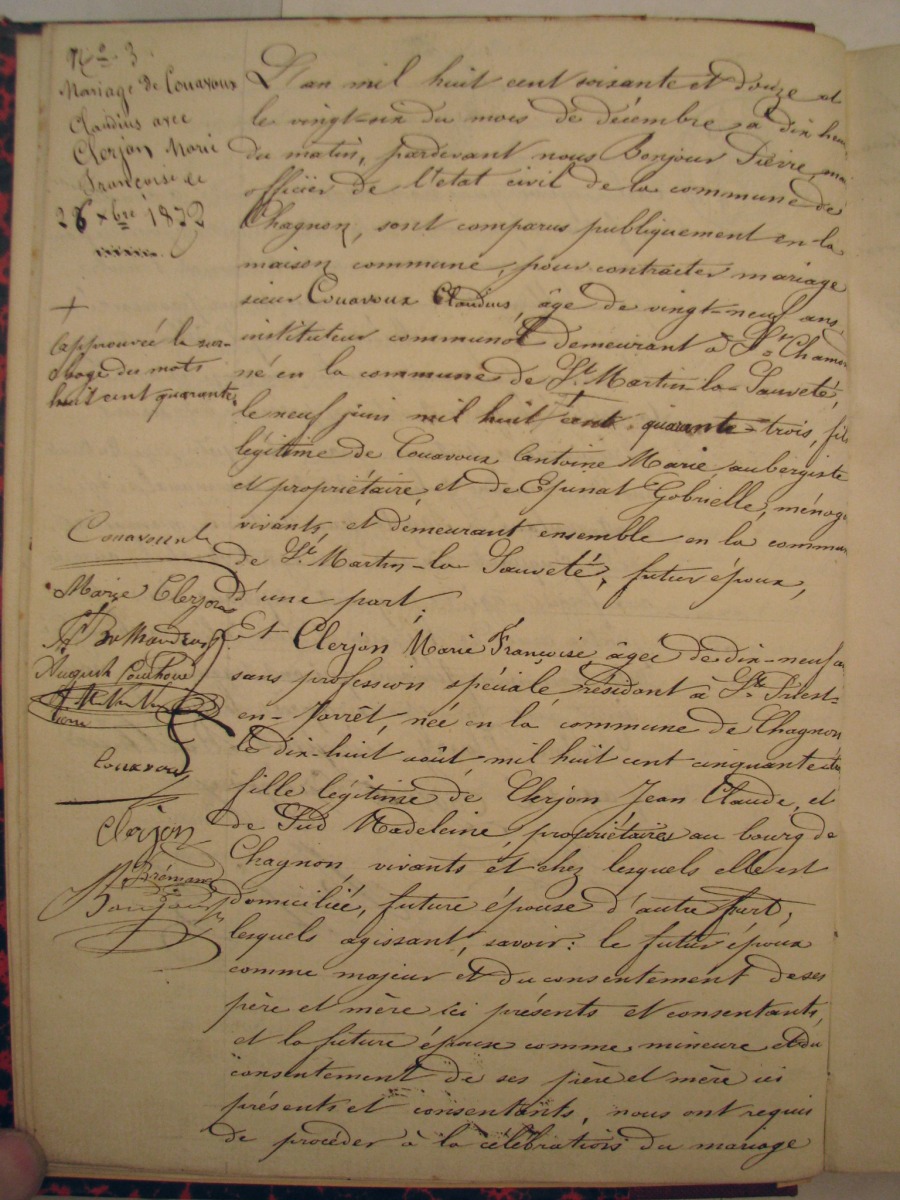 No 3.
Mariage de Couavoux
Claudius avec
Clerjon Marie
Françoise le
26 xbre 1872
+
Approuvée la sur-
charge des mots
huit cent quarante.
Couavoux
Marie Clerjon
Couavoux
Clerjon
Brémand
Bonjour
L'an mil huit cent soixante et douze et
le vingt-six du mois de décembre à dix heu
du matin, pardevant nous Bonjour Pierre, ma
officier de l'état civil de la commune de
Chagnon, sont comparus publiquement en la
maison commune, pour contracter mariage
sieur Couavoux Claudius, âge de vingt-neuf ans,
instituteur communal demeurant à St Chamon
né en la commune de St Martin-la-Sauveté,
le neuf juin mil huit cent quarante-trois, fils
légitime de Couavoux Antoine Marie aubergiste
et propriétaire, et de Epinat Gabrielle, ménag
vivants, et demeurant ensemble en la commun
de St Martin-la-Sauveté, futur époux,
d'une part.
Et Clerjon Marie Françoise, âgée de dix-neuf a
sans profession spéciale, résidant à St Priest-
en-Jarrêt, née en la commune de Chagnon
le dix-huit août mil huit cent cinquante
fille légitime de Clerjon Jean Claude, et
de Sud Madeleine, propriétaires au bourg de
Chagnon, vivants et chez lesquels elle est
domiciliée, future épouse d'autre part,
lesquels agissant, savoir: le futur époux
comme majeur et du consentement de ses
père et mère ici présents et consentants,
et la future épouse comme mineure et du
consentement de ses père et mère ici
présents et consentants, nous ont requis
de procéder à la célébration du mariage